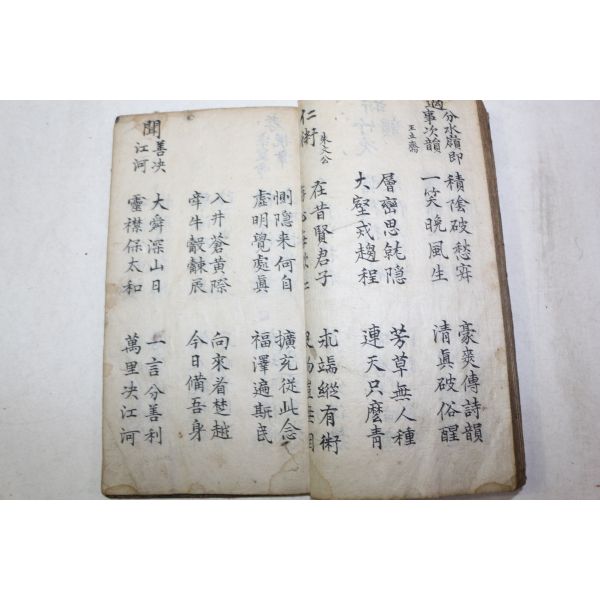 分水嶺即
事次韻
王立齋
積陰破愁霽 豪爽傳詩韻
一笑晚風生 清眞破俗醒
層巒思乾隐 芳草無人種
大壑或趨程 連天只麽青
仁術 朱文公
在昔賢君子 求端縱有術
惻隐來何自 擴充從此念
虛明覺處眞 福澤遍斯民
入井蒼黃際 向來看楚越
牽牛觳觫辰 今日備吾身
聞善决
江河
大舜深山日 一言分善利
靈襟保太和 萬里决江河